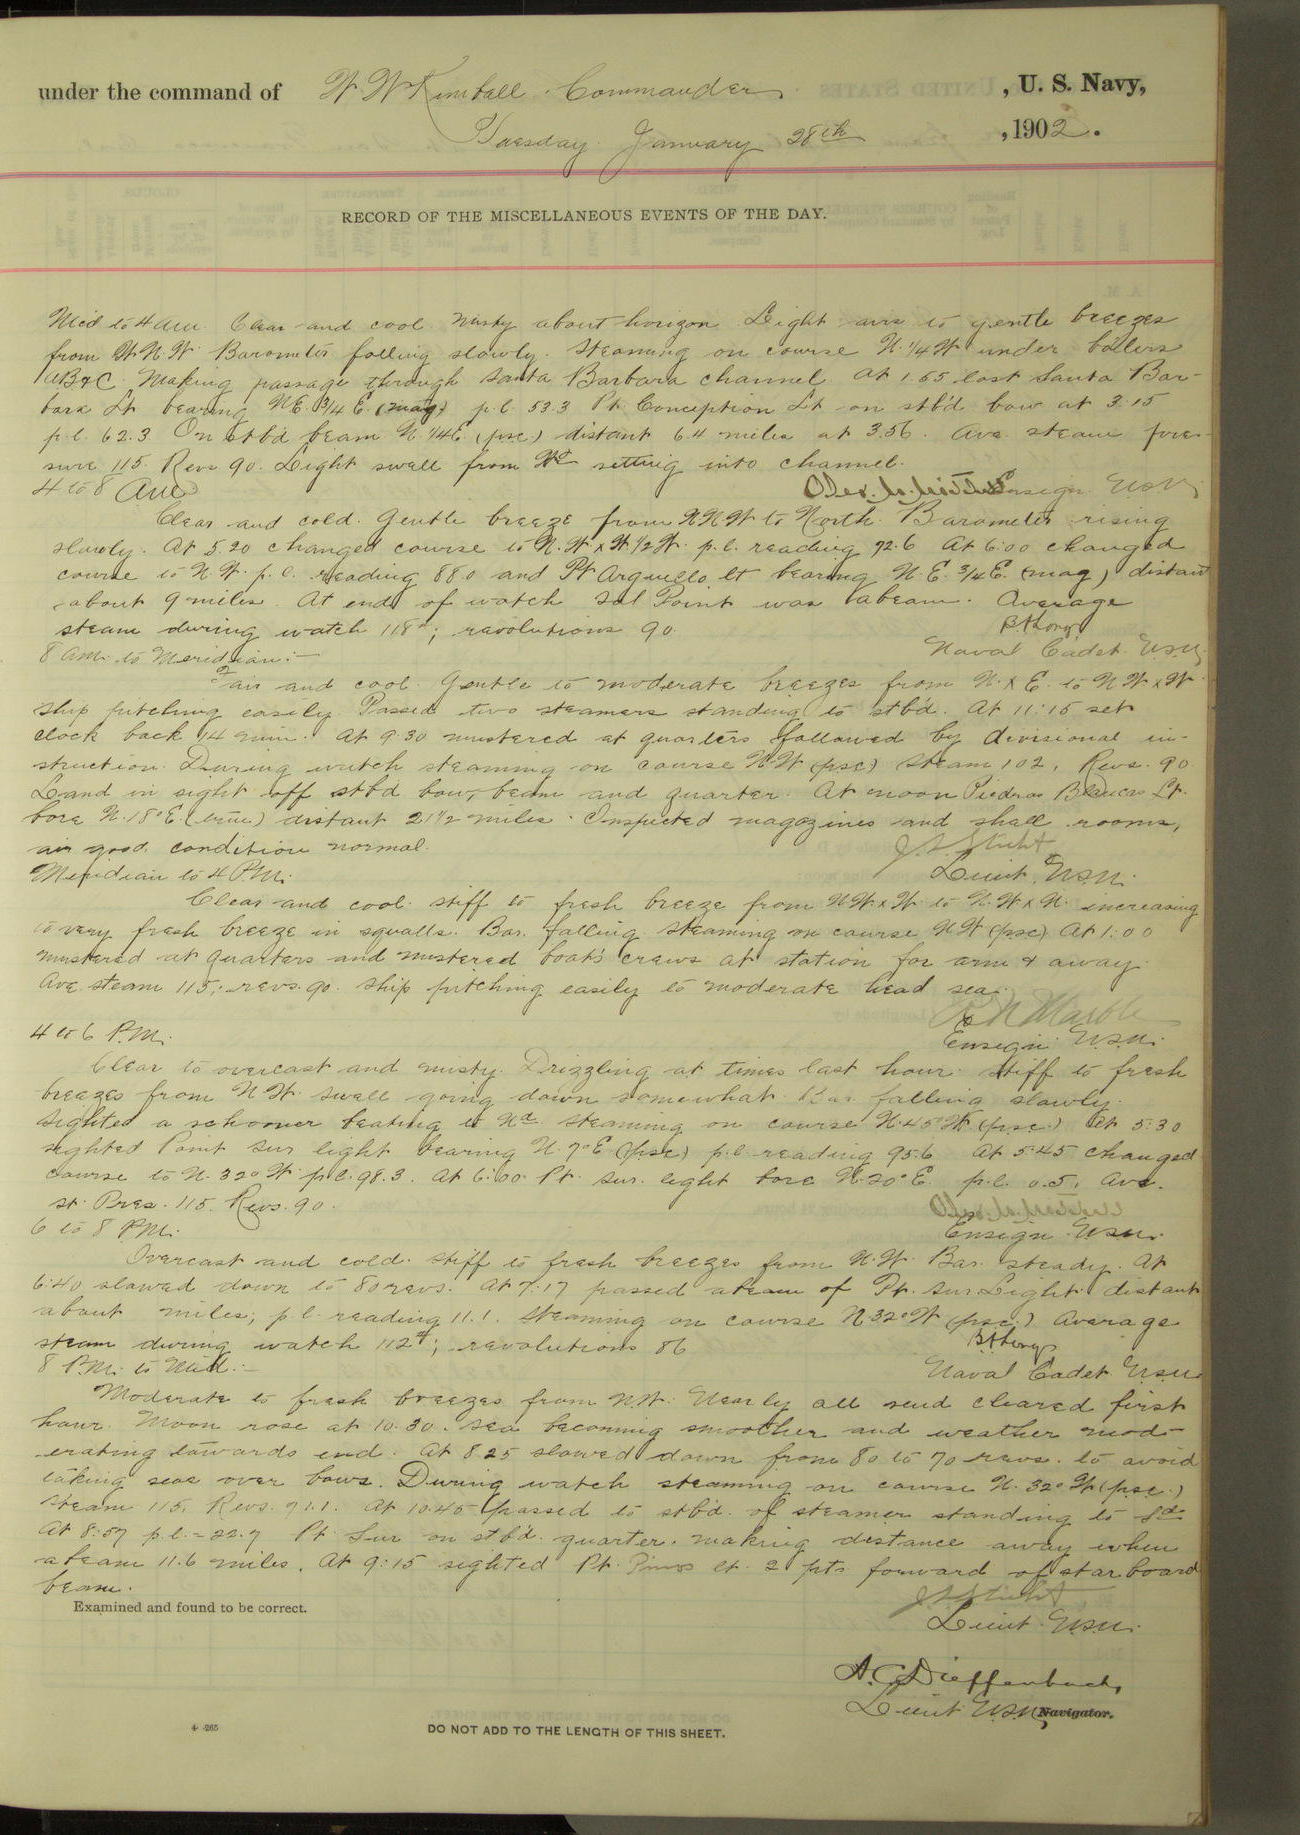 under the command of W W Kimball Commander , U. S. Navy,
Tuesday January 28th , 1902.
RECORD OF THE MISCELLANEOUS EVENTS OF THE DAY.
Mid to 4 am Clear and cool misty about horizon Light airs to gentle breezes
from W.N.W. Barometer falling slowly. Steaming on course N. 1/4 W under boilers
B & C. Making passage through Santa Barbara channel At 1.55 lost Santa Bar-
bara Lt bearing NE. 3/4 E. (mag) p.l. 53.3 Pt Conception Lt on stb'd bow at 3.15
p.l. 62.3 On stb'd beam N. 1/4 E (psc) distant 6.4 miles at 3.56. Ave. steam pres-
sure 115. Revs 90. Light swell from Wd setting into channel.
Ensign USN
4 to 8 Am
Clear and cold. Gentle breeze from NNW to North. Barometer rising
slowly. At 5.20 changed course to N.W x W 1/2 W. p.l. reading 72.6 At 6:00 changed
course to N.W. p.l. reading 88.0 and Pt Arguello lt bearing N.E. 3/4 E. (mag) distant
about 9 miles. At end of watch Sal Point was abeam. Average
steam during watch 118#; revolutions 90.
Naval Cadet U.S.N.
8 am. to Meridian:-
Fair and cool. Gentle to moderate breezes from N. x E. to N W x W.
Ship pitching easily. Passed two steamers standing to stb'd. At 11:15 set
clock back 14 min. At 9.30 mustered at quarters followed by divisional in-
struction. During watch steaming on course N.W (psc) Steam 102, Revs. 90
Land in sight off stb'd bow, beam and quarter. At noon Piedras Blancas Lt.
bore N. 18° E (true) distant 21 1/2 miles. Inspected magazines and shell rooms,
in good condition normal.
Lieut. U.S.N.
Meridian to 4 P.M:
Clear and cool. stiff to fresh breeze from N W x W to N. W x N. increasing
to very fresh breeze in squalls. Bar. falling. Steaming on course N W (psc) At 1:00
mustered at quarters and mustered boat's crews at station for arm & away.
Ave steam 115; revs. 90. Ship pitching easily to moderate head sea.
Marble
Ensign U.S.N.
4 to 6 P.M.
Clear to overcast and misty. Drizzling at times last hour. Stiff to fresh
breezes from N W. Swell going down somewhat. Bar falling slowly.
Sighted a schooner beating to Nd Steaming on course N. 45° W (psc) At 5:30
sighted Point Sur light bearing N. 7° E (psc) p.l. reading 95.6 At 5.45 changed
course to N. 32° W p.l. 98.3. At 6:00 Pt. Sur. light bore N. 20° E. p.l. 0.5. Ave.
st. Pres. 115. Revs. 90.
Ensign U.S.N.
6 to 8 P.M:
Overcast and cold. Stiff to fresh breezes from N. W. Bar. steady. At
6.40 slowed down to 80 revs. At 7:17 passed abeam of Pt. Sur Light distant
about miles; p.l. reading 11.1. Steaming on course N 32° W (psc.) Average
steam during watch 112#; revolutions 86
Naval Cadet U.S.N.
8 P.M. to Mid:-
Moderate to fresh breezes from N W. Nearly all cleared first
hour. Moon rose at 10.30. Sea becoming smoother and weather mod-
erating towards end. At 8.25 slowed down from 80 to 70 revs. to avoid
taking seas over bows. During watch steaming on course N. 32° W (psc.)
Steam 115. Revs. 71.1. At 10.45 passed to stb'd. of steamer standing to Sd
At 8:57 p.l. = 22.7 Pt Sur on stb'd. quarter. making distance away when
abeam 11.6 miles. At 9:15 sighted Pt. Pinos lt. 2 pts forward of starboard
beam.
Examined and found to be correct.
Lieut U.S.N.
A. C. Dieffenbach,
Lieut U.S.N, Navigator.
DO NOT ADD TO THE LENGTH OF THIS SHEET.